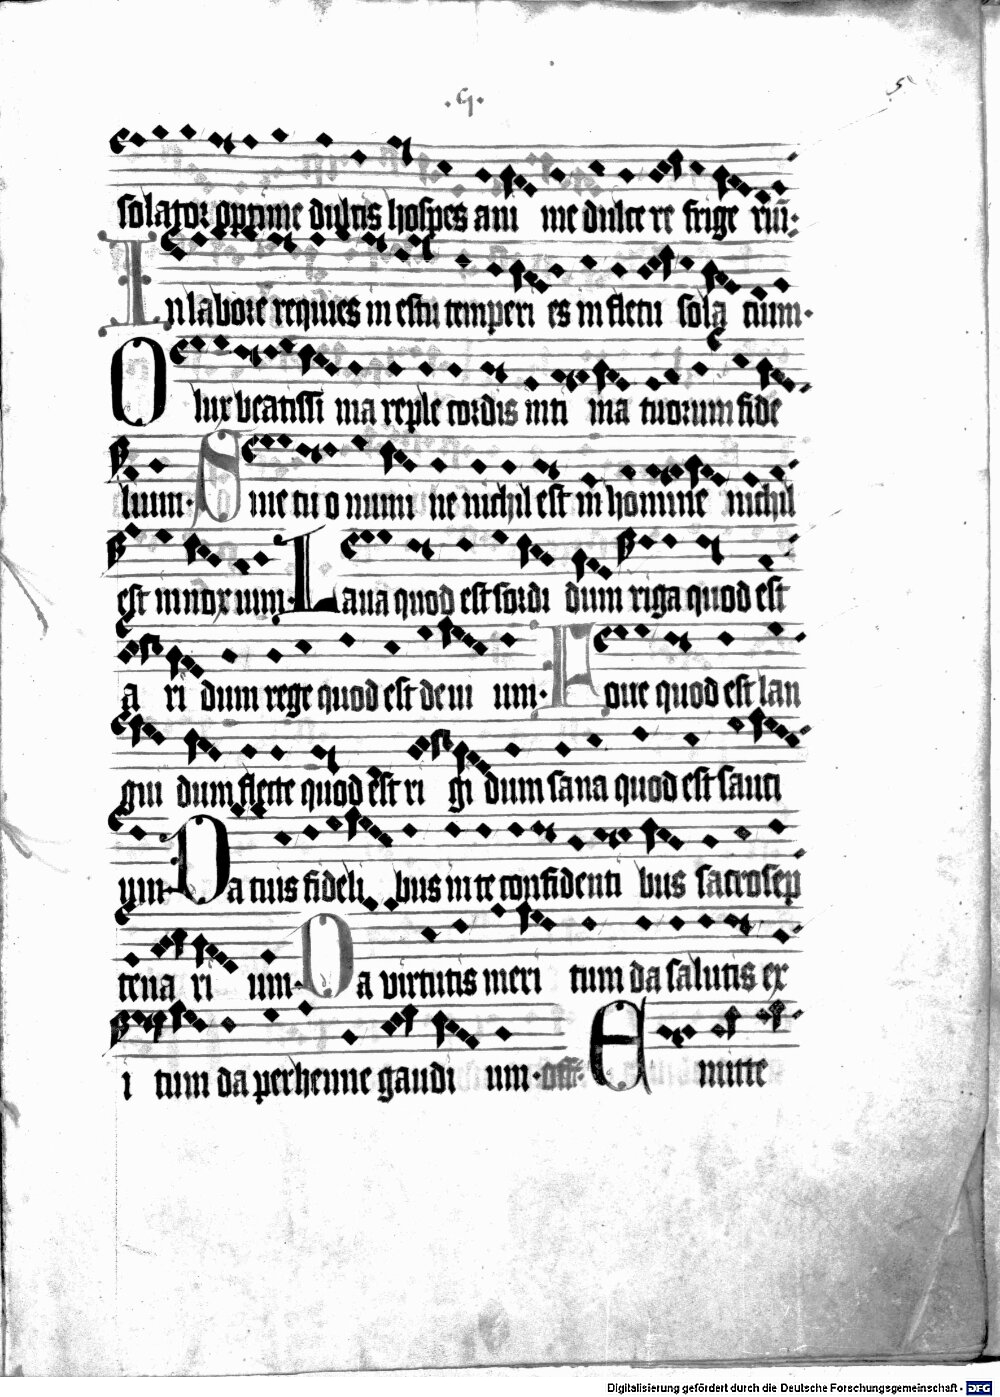 .5.
5
solator optime dulcis hospes ani me dulce re frige riū:
In labore requies in estu temperi es in fletu sola cium.
O lux beatissi ma reple cordis inti ma tuorum fide
lium. Sine tuo numi ne nichil est in homine nichil
est innoxium. Laua quod est sordi dum riga quod est
a ri dum rege quod est deui um. Foue quod est lan
gui dum flecte quod est ri gi dum sana quod est sauci
um Da tuis fideli bus in te confidenti bus sacrosep
tena ri um. Da virtutis meri tum da salutis ex
i tum da perhenne gaudi um. off. E mitte
Digitalisierung gefördert durch die Deutsche Forschungsgemeinschaft - DFG